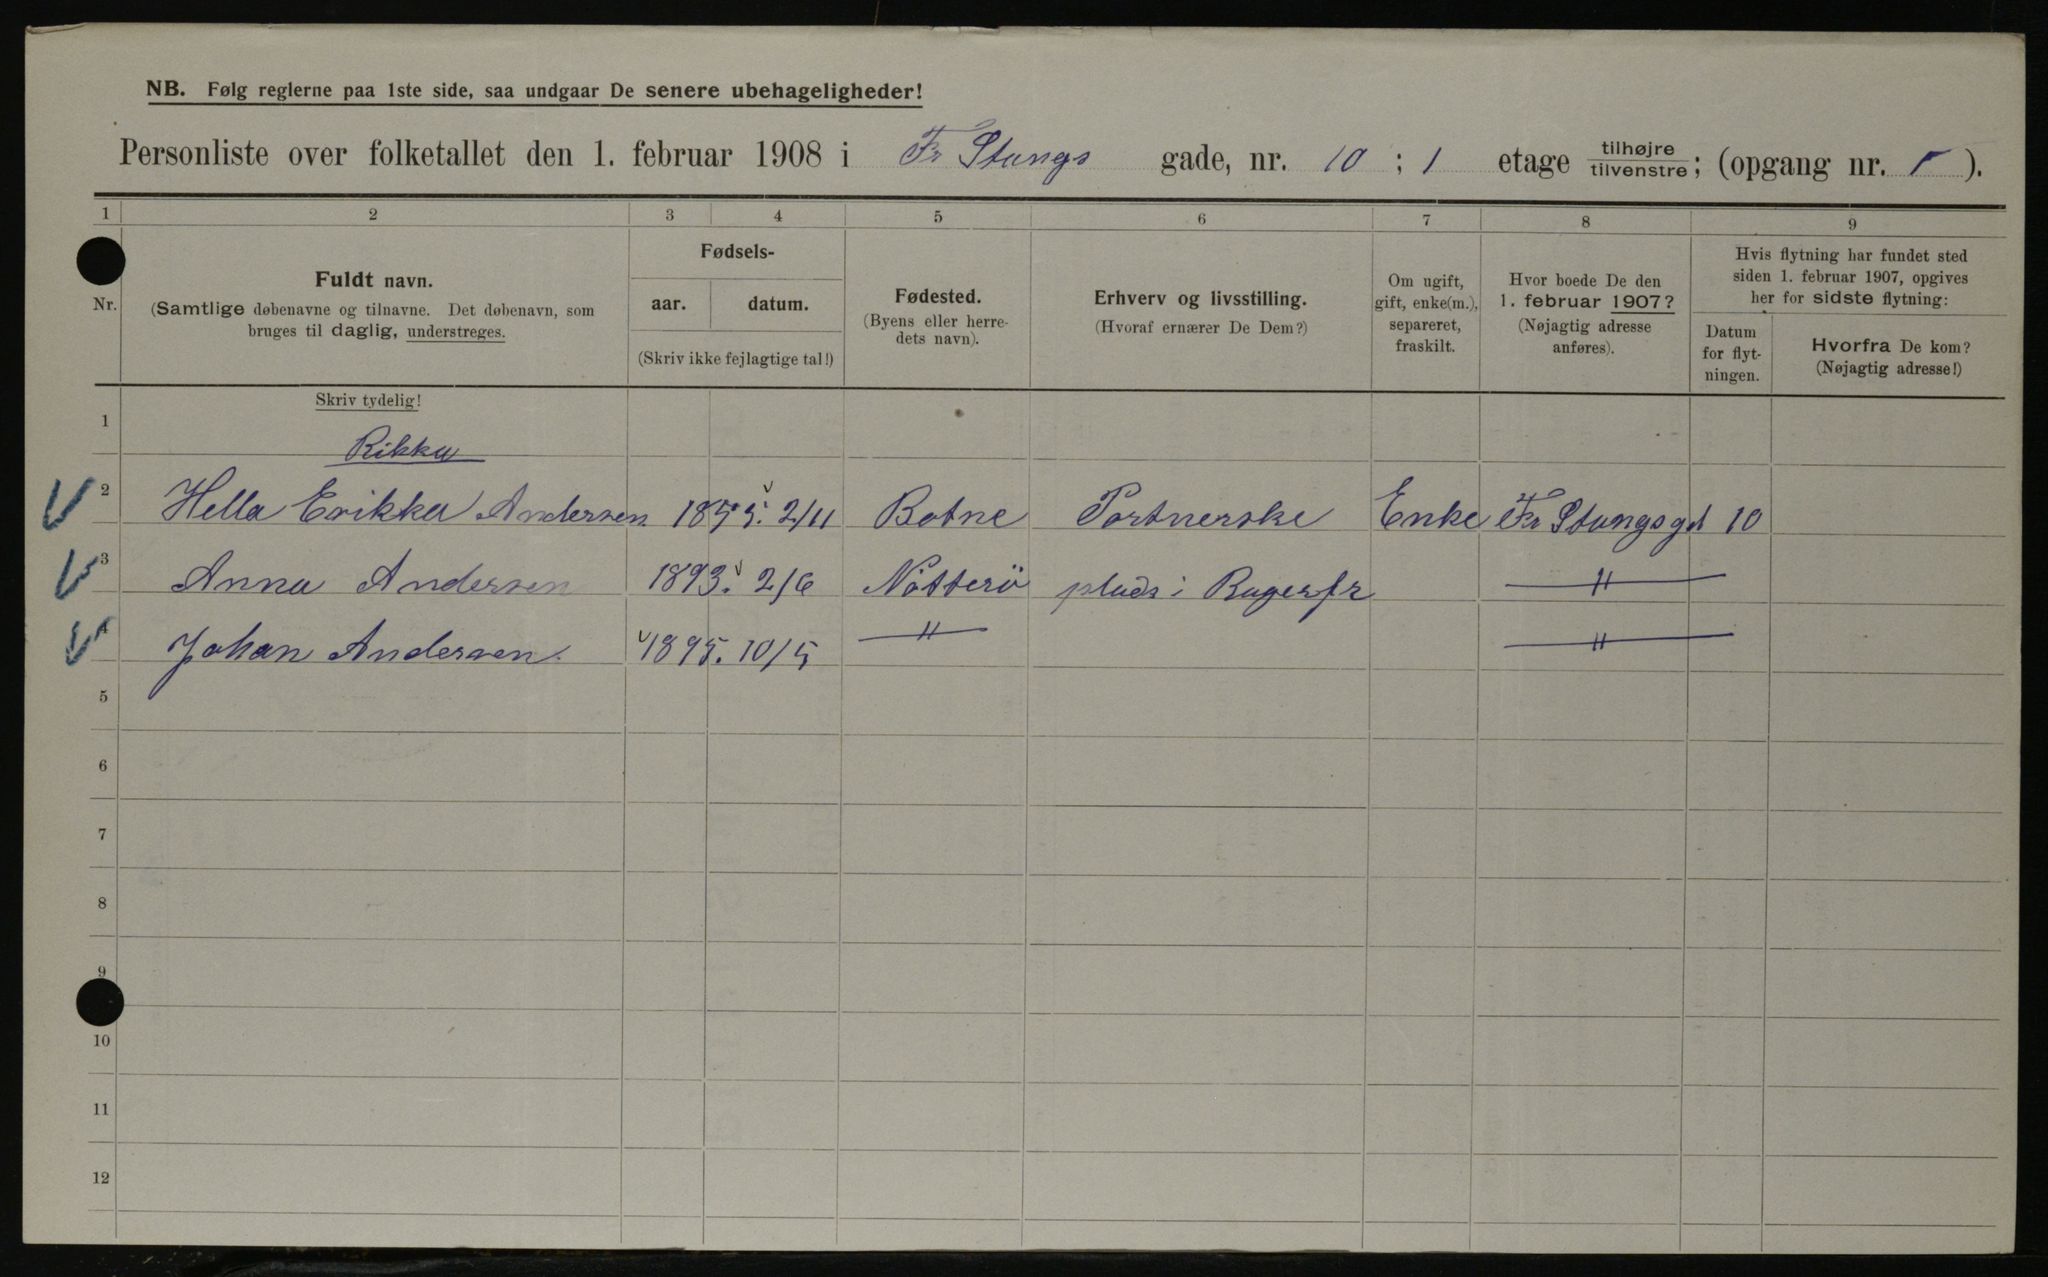 NB. Følg reglerne paa 1ste side, saa undgaar De senere ubehageligheder!
Personliste over folketallet den 1. februar 1908 i Fr Stangs gade, nr. 10 ; 1 etage tilhøjre/tilvenstre; (opgang nr. ).
1 2 3 4 5 6 7 8 9
Nr.
Fuldt navn.
(Samtlige døbenavne og tilnavne. Det døbenavn, som
bruges til daglig, understreges.
Fødsels-
aar. datum.
(Skriv ikke fejlagtige tal!)
Fødested.
(Byens eller herre-
dets navn).
Erhverv og livsstilling.
(Hvoraf ernærer De Dem?)
Om ugift,
gift, enke(m.),
separeret,
fraskilt.
Hvor boede De den
1. februar 1907?
(Nøjagtig adresse
anføres).
Hvis flytning har fundet sted
siden 1. februar 1907, opgives
her for sidste flytning:
Datum
for flyt-
ningen.
Hvorfra De kom?
(Nøjagtig adresse!)
Skriv tydelig!
1
Rikka
2 Hella Erikka Andersen 1855. 2/11 Botne Portnerske Enke Fr Stangsgd 10
3 Anna Andersen 1893. 2/6 Nötterö plads i Bagerfr —〃—
4 Johan Andersen. 1895. 10/5 —〃— —〃—
5
6
7
8
9
10
11
12